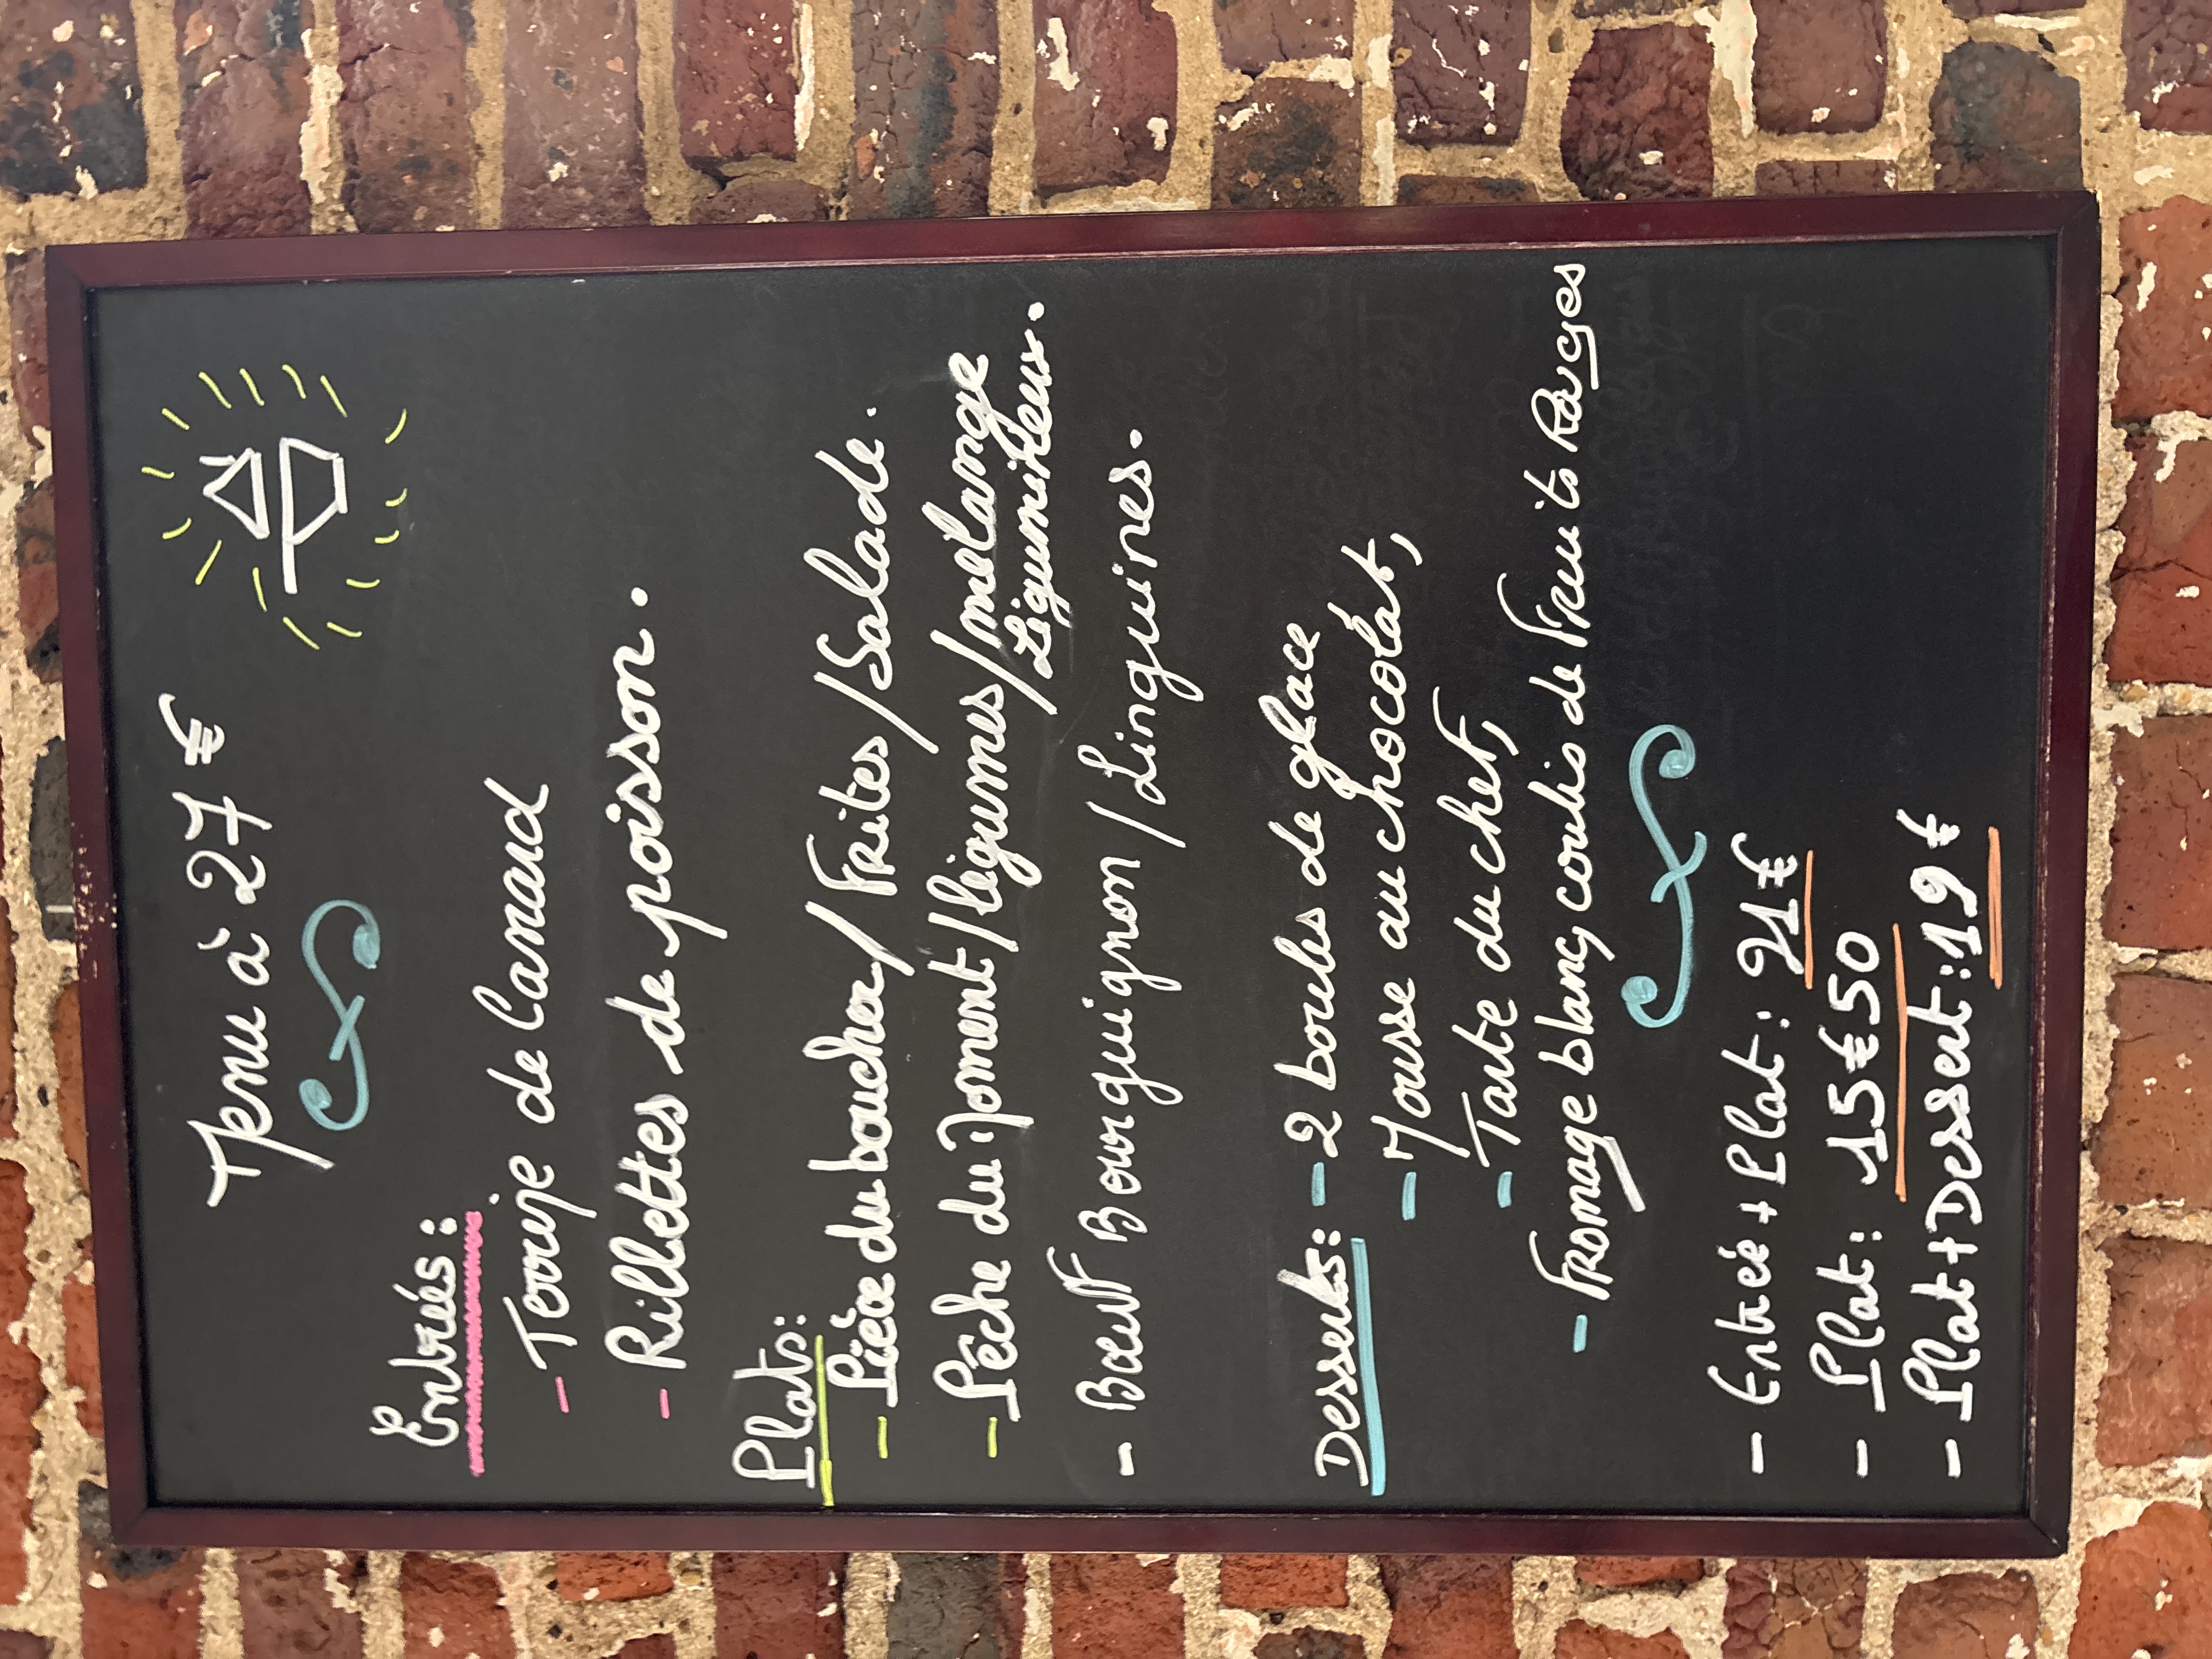 Menu à 27 €
Entrées :
- Terrine de Canard
- Rillettes de poisson.
Plats :
- Pièce du boucher / Frites / Salade.
- Pêche du Moment / légumes / mélange
/ Légumitteux.
- Boeuf Bourguignon / Linguines.
Desserts : - 2 boules de glace
- Mousse au chocolat,
- Tarte du chef,
- Fromage blanc, coulis de Fruits Rouges
- Entrée + Plat : 21 €
- Plat : 15 € 50
- Plat + Dessert : 19 €